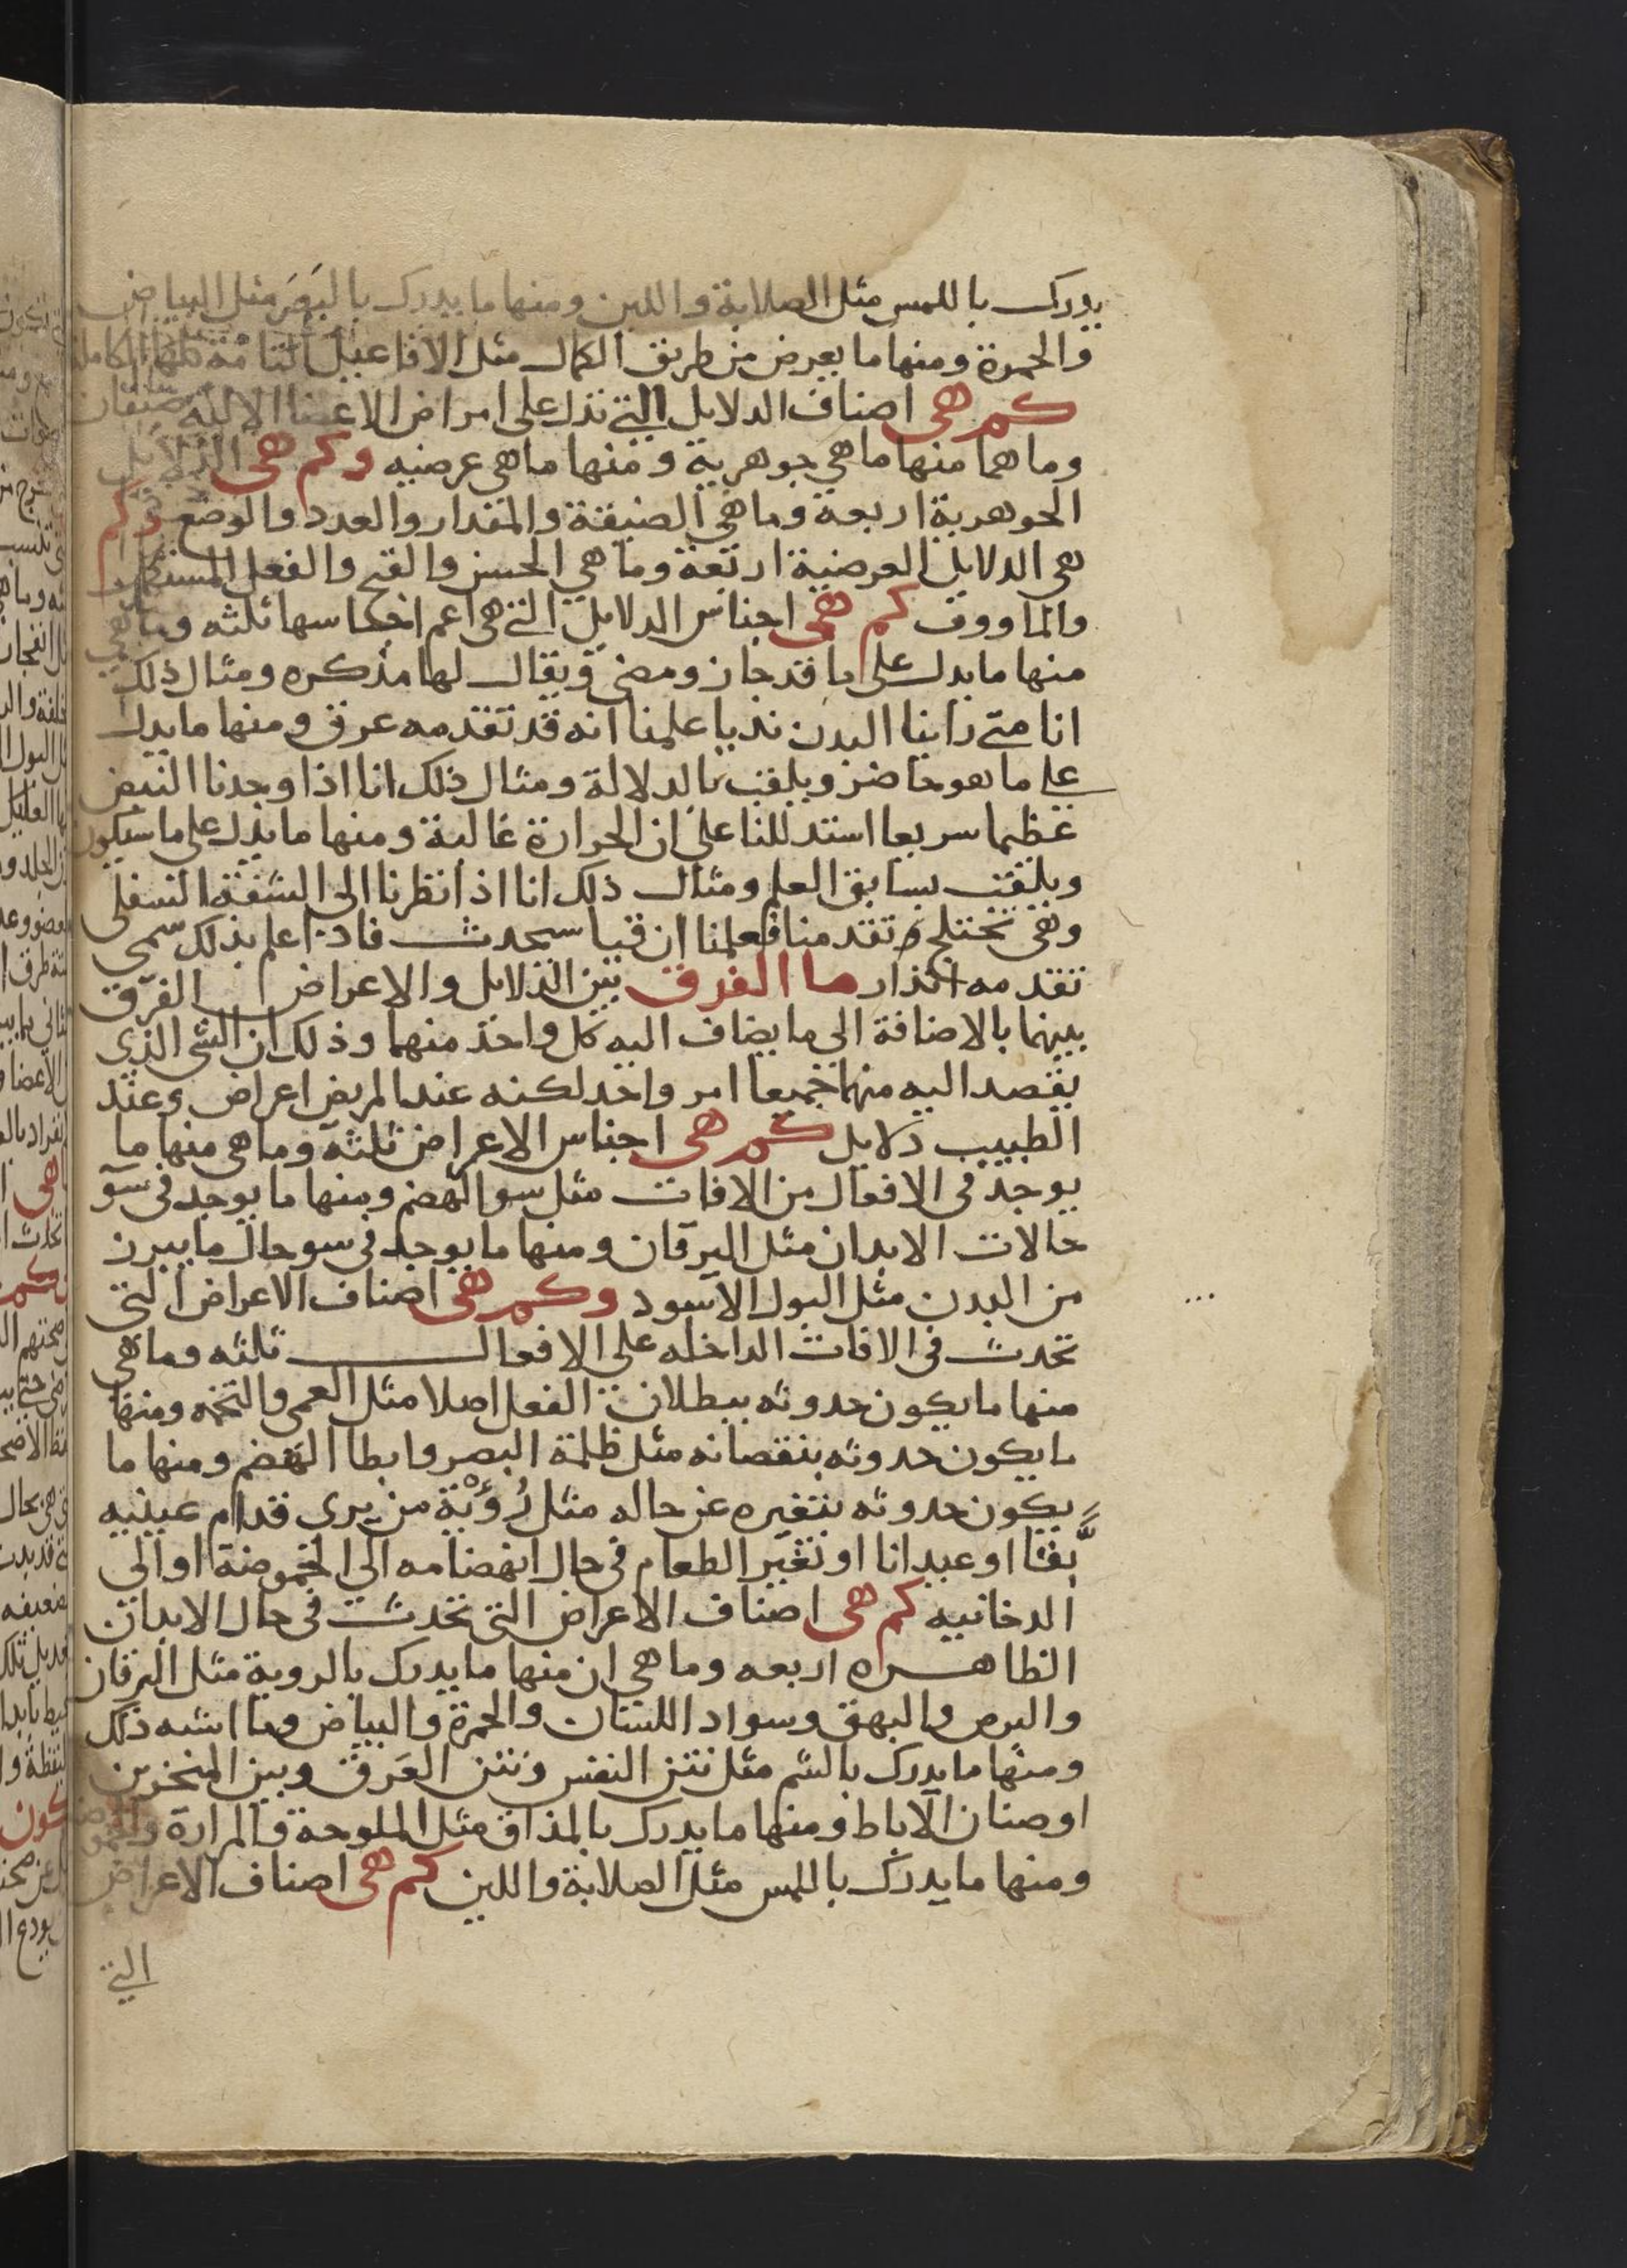 يدرك باللمس مثل الصلابة واللين ومنها ما يدرك بالبصر مثل البياض
والحمرة ومنها ما يعرض من طريق الكمال مثل الافاعيل التامة الكاملة
كم هى اصناف الدلايل التي تدل على امراض الاعضا الالية صنفان
وما هما منها ما هي جوهرية ومنها ما هي عرضيه وكم هى الدلايل
الجوهرية اربعة وما هي الصيغة والمقدار والعدد والوضع وكم
هى الدلايل العرضية اربعة وما هي الحسن والقبح والفعل
والماووف كم هى اجناس الدلايل التي هى اعم اجناسها ثلثه وما هي
منها ما يدل على ما قد جاز ومضى ويقال لها مذكره ومثال ذلك
انا متى راينا البدن نديا علمنا انه قد تقدمه عرق ومنها ما يدل
على ما هو حاضر ويلقب بالدلالة ومثال ذلك انا اذا وجدنا النبض
عظيما سريعا استدللنا على ان الحرارة غالبة ومنها ما يدل على ما سيكون
ويلقب بسابق العلم ومثال ذلك انا اذا نظرنا الى الشفة السفلى
وهى تختلج تقدمنا فعلمنا ان قيا سيحدث فاذا علم بذلك سمي
تقدمه انذار ما الفرق بين الدلايل والاعراض الفرق
بينهما بالاضافة الى ما يضاف اليه كل واحد منهما وذلك ان الشى الذي
يقصد اليه منهما جميعا امر واحد لكنه عند المريض اعراض وعند
الطبيب دلايل كم هى اجناس الاعراض ثلثة وما هى منها ما
يوجد فى الافعال من الافات مثل سو الهضم ومنها ما يوجد فى سو
حالات الابدان مثل اليرقان ومنها ما يوجد فى سو حال ما يبرز
من البدن مثل البول الاسود وكم هى اصناف الاعراض التى
تحدث فى الافات الداخله على الافعال ثلثه وما هي
منها ما يكون حدوثه ببطلان الفعل اصلا مثل العمى والتخمه ومنها
ما يكون حدوثه بنقصانه مثل ظلمة البصر وابطا الهضم ومنها ما
يكون حدوثه بتغيره عن حاله مثل رؤية من يرى قدام عينيه
بقا او عيدانا او تغير الطعام فى حال انهضامه الى الحموضة او الى
الدخانيه كم هى اصناف الاعراض التى تحدث فى حال الابدان
الظاهره اربعه وما هى ان منها ما يدرك بالروية مثل اليرقان
والبرص والبهق وسواد اللسان والحمرة والبياض وما اشبه ذلك
ومنها ما يدرك بالشم مثل نتن النفس ونتن العرق وبين المنخرين
او صنان الاباط ومنها ما يدرك بالمذاق مثل الملوحة والمرارة
ومنها ما يدرك باللمس مثل الصلابة واللين كم هى اصناف الاعراض
التي